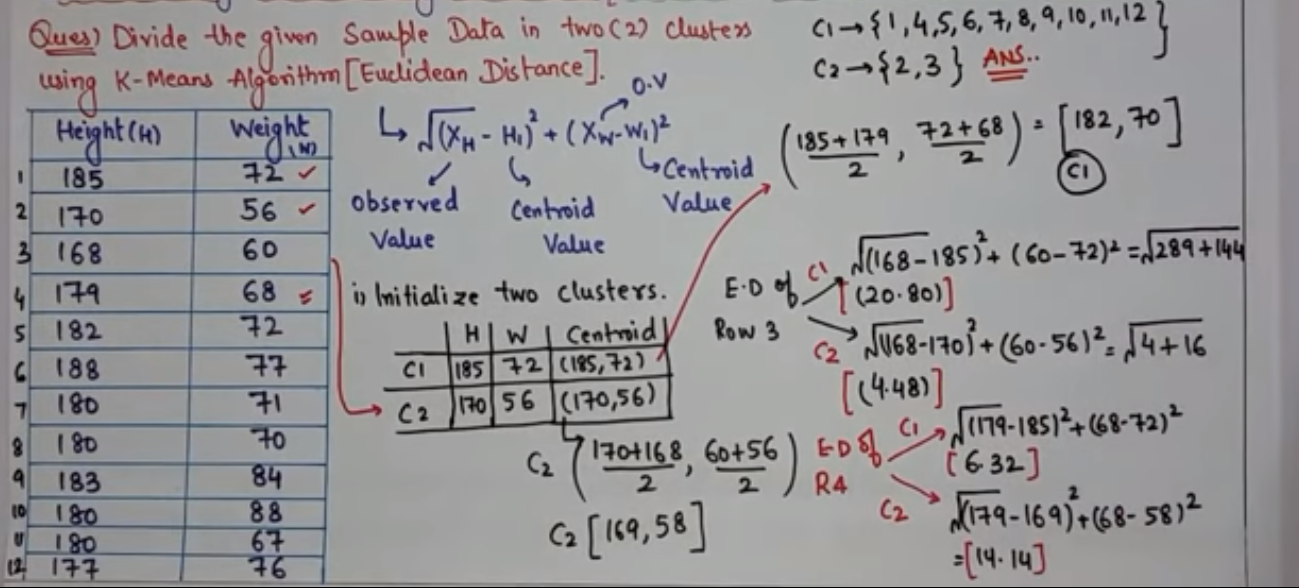 Ques) Divide the given Sample Data in two(2) clusters
using K-Means Algorithm [Euclidean Distance].
C1→{1,4,5,6,7,8,9,10,11,12}
C2→{2,3} ANS..
Height(H) Weight(W)
1 185 72 ✓
2 170 56 ✓
3 168 60
4 179 68
5 182 72
6 188 77
7 180 71
8 180 70
9 183 84
10 180 88
11 180 67
12 177 76
↳ √(X_H - H₁)² + (X_W - W₁)²
O.V
Observed Value
Centroid Value
Centroid Value
i) Initialize two clusters.
H W Centroid
C1 185 72 (185,72)
C2 170 56 (170,56)
C2 (170+168/2, 60+56/2)
C2 [169,58]
(185+179/2, 72+68/2) = [182,70]
C1
E.D of Row 3
C1 √(168-185)² + (60-72)² = √289+144
[(20.80)]
C2 √(168-170)² + (60-56)² = √4+16
[(4.48)]
E.D of R4
C1 √(179-185)² + (68-72)²
[6.32]
C2 √(179-169)² + (68-58)²
=[14.14]